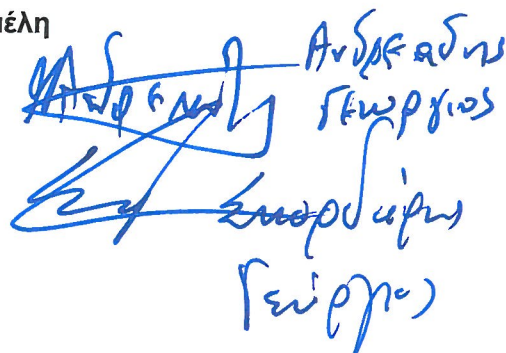 μέλη
Ανδρεαδης
Γεώργιος
Σκορδάρης
Γεώργιος